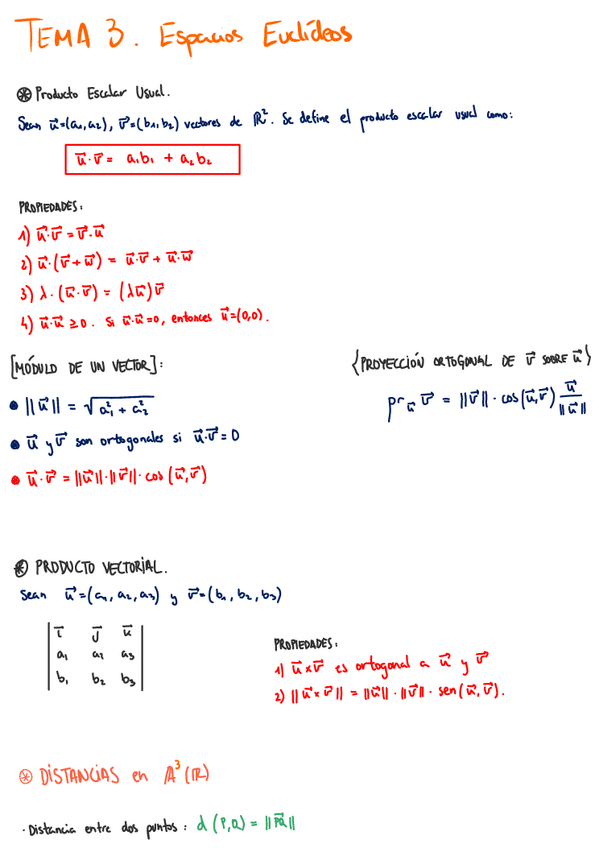 TEMA 3. Espacios Euclídeos
⊛ Producto Escalar Usual.
Sean u⃗=(a₁,a₂), v⃗=(b₁,b₂) vectores de ℝ². Se define el producto escalar usual como:
u⃗·v⃗ = a₁b₁ + a₂b₂
PROPIEDADES:
1) u⃗·v⃗ = v⃗·u⃗
2) u⃗·(v⃗+w⃗) = u⃗·v⃗ + u⃗·w⃗
3) λ·(u⃗·v⃗) = (λu⃗)v⃗
4) u⃗·u⃗ ≥ 0. Si u⃗·u⃗=0, entonces u⃗=(0,0).
[MÓDULO DE UN VECTOR]:
• ||u⃗|| = √(a₁² + a₂²)
• u⃗ y v⃗ son ortogonales si u⃗·v⃗ = 0
• u⃗·v⃗ = ||u⃗||·||v⃗||·cos(u⃗,v⃗)
{PROYECCIÓN ORTOGONAL DE v⃗ SOBRE u⃗}
pr_u⃗ v⃗ = ||v⃗||·cos(u⃗,v⃗) u⃗/||u⃗||
⊛ PRODUCTO VECTORIAL.
Sean u⃗=(a₁,a₂,a₃) y v⃗=(b₁,b₂,b₃)
| i⃗ j⃗ u⃗ |
| a₁ a₂ a₃ |
| b₁ b₂ b₃ |
PROPIEDADES:
1) u⃗×v⃗ es ortogonal a u⃗ y v⃗
2) ||u⃗×v⃗|| = ||u⃗||·||v⃗||·sen(u⃗,v⃗).
⊛ DISTANCIAS en A³(ℝ)
· Distancia entre dos puntos: d(P,Q) = ||PQ⃗||